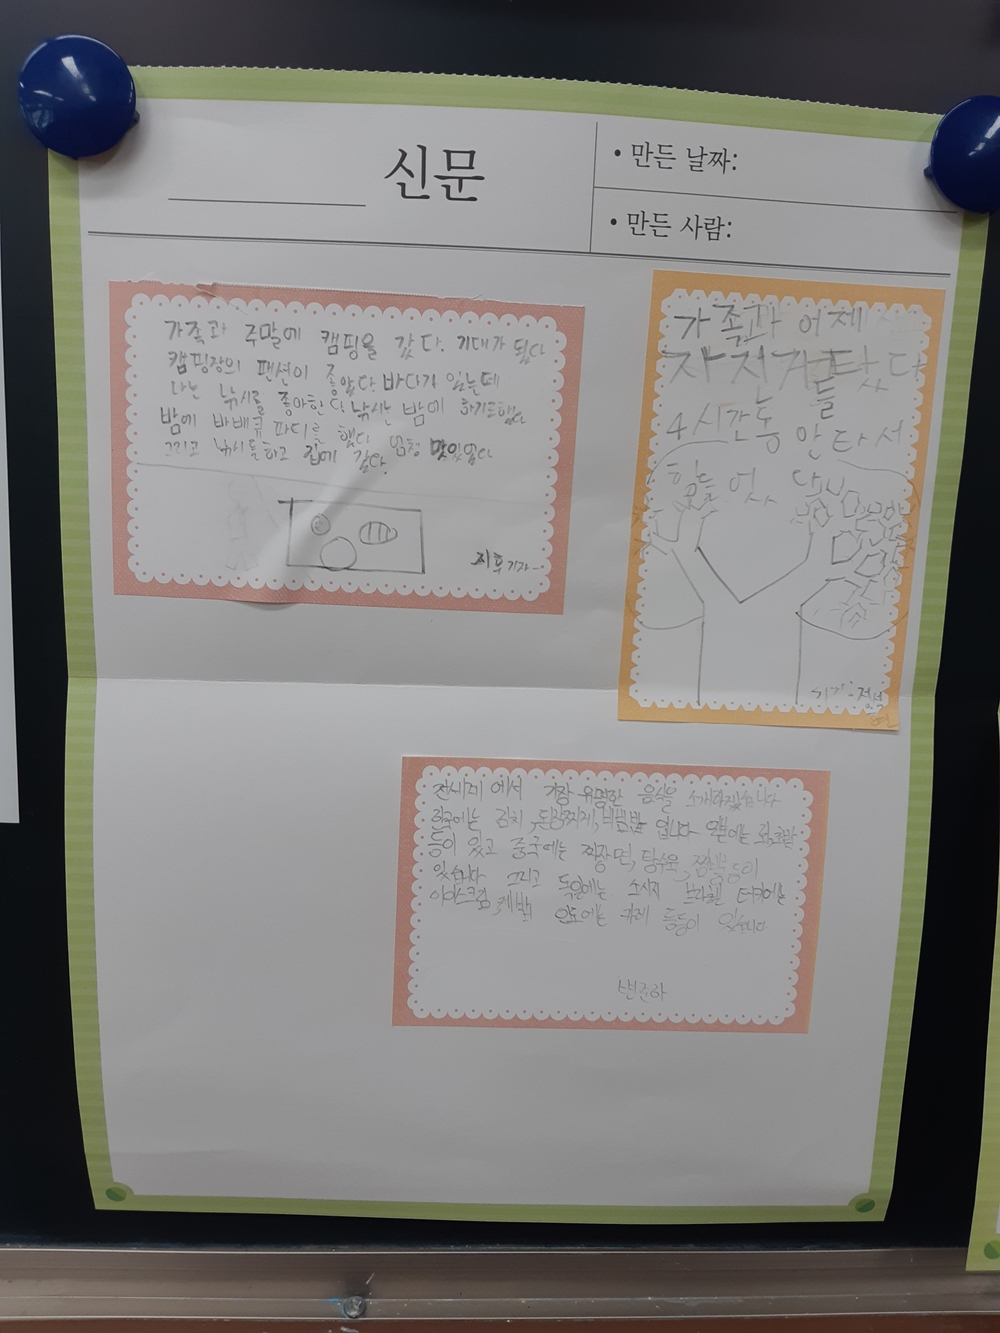 신문
• 만든 날짜:
• 만든 사람:
가족과 주말에 캠핑을 갔다. 기대가 됬다
캠핑장의 팬션이 좋았다 바다가 있는데
나는 낚시를 좋아한다 낚시는 밤에 하기도했다
밤에 바배큐 파디를 했다 엄청 맛있었다
그리고 낚시를하고 집에 갔다.
지후 기자-
가족과 어제
자전거를 탔다
4시간동안 타서
힘들었다
기자-
전세계에서 가장 유명한 음식을 소개하겠습니다
한국에는 김치, 된장찌게, 비빔밥 입니다 일본에는 회, 초밥
등이 있고 중국에는 짜장면, 탕수육, 짬뽕 등이
있습니다 그리고 독일에는 소시지 터키에는
아이스크림, 케밥 인도에는 카레 등등이 있습니다
변준하